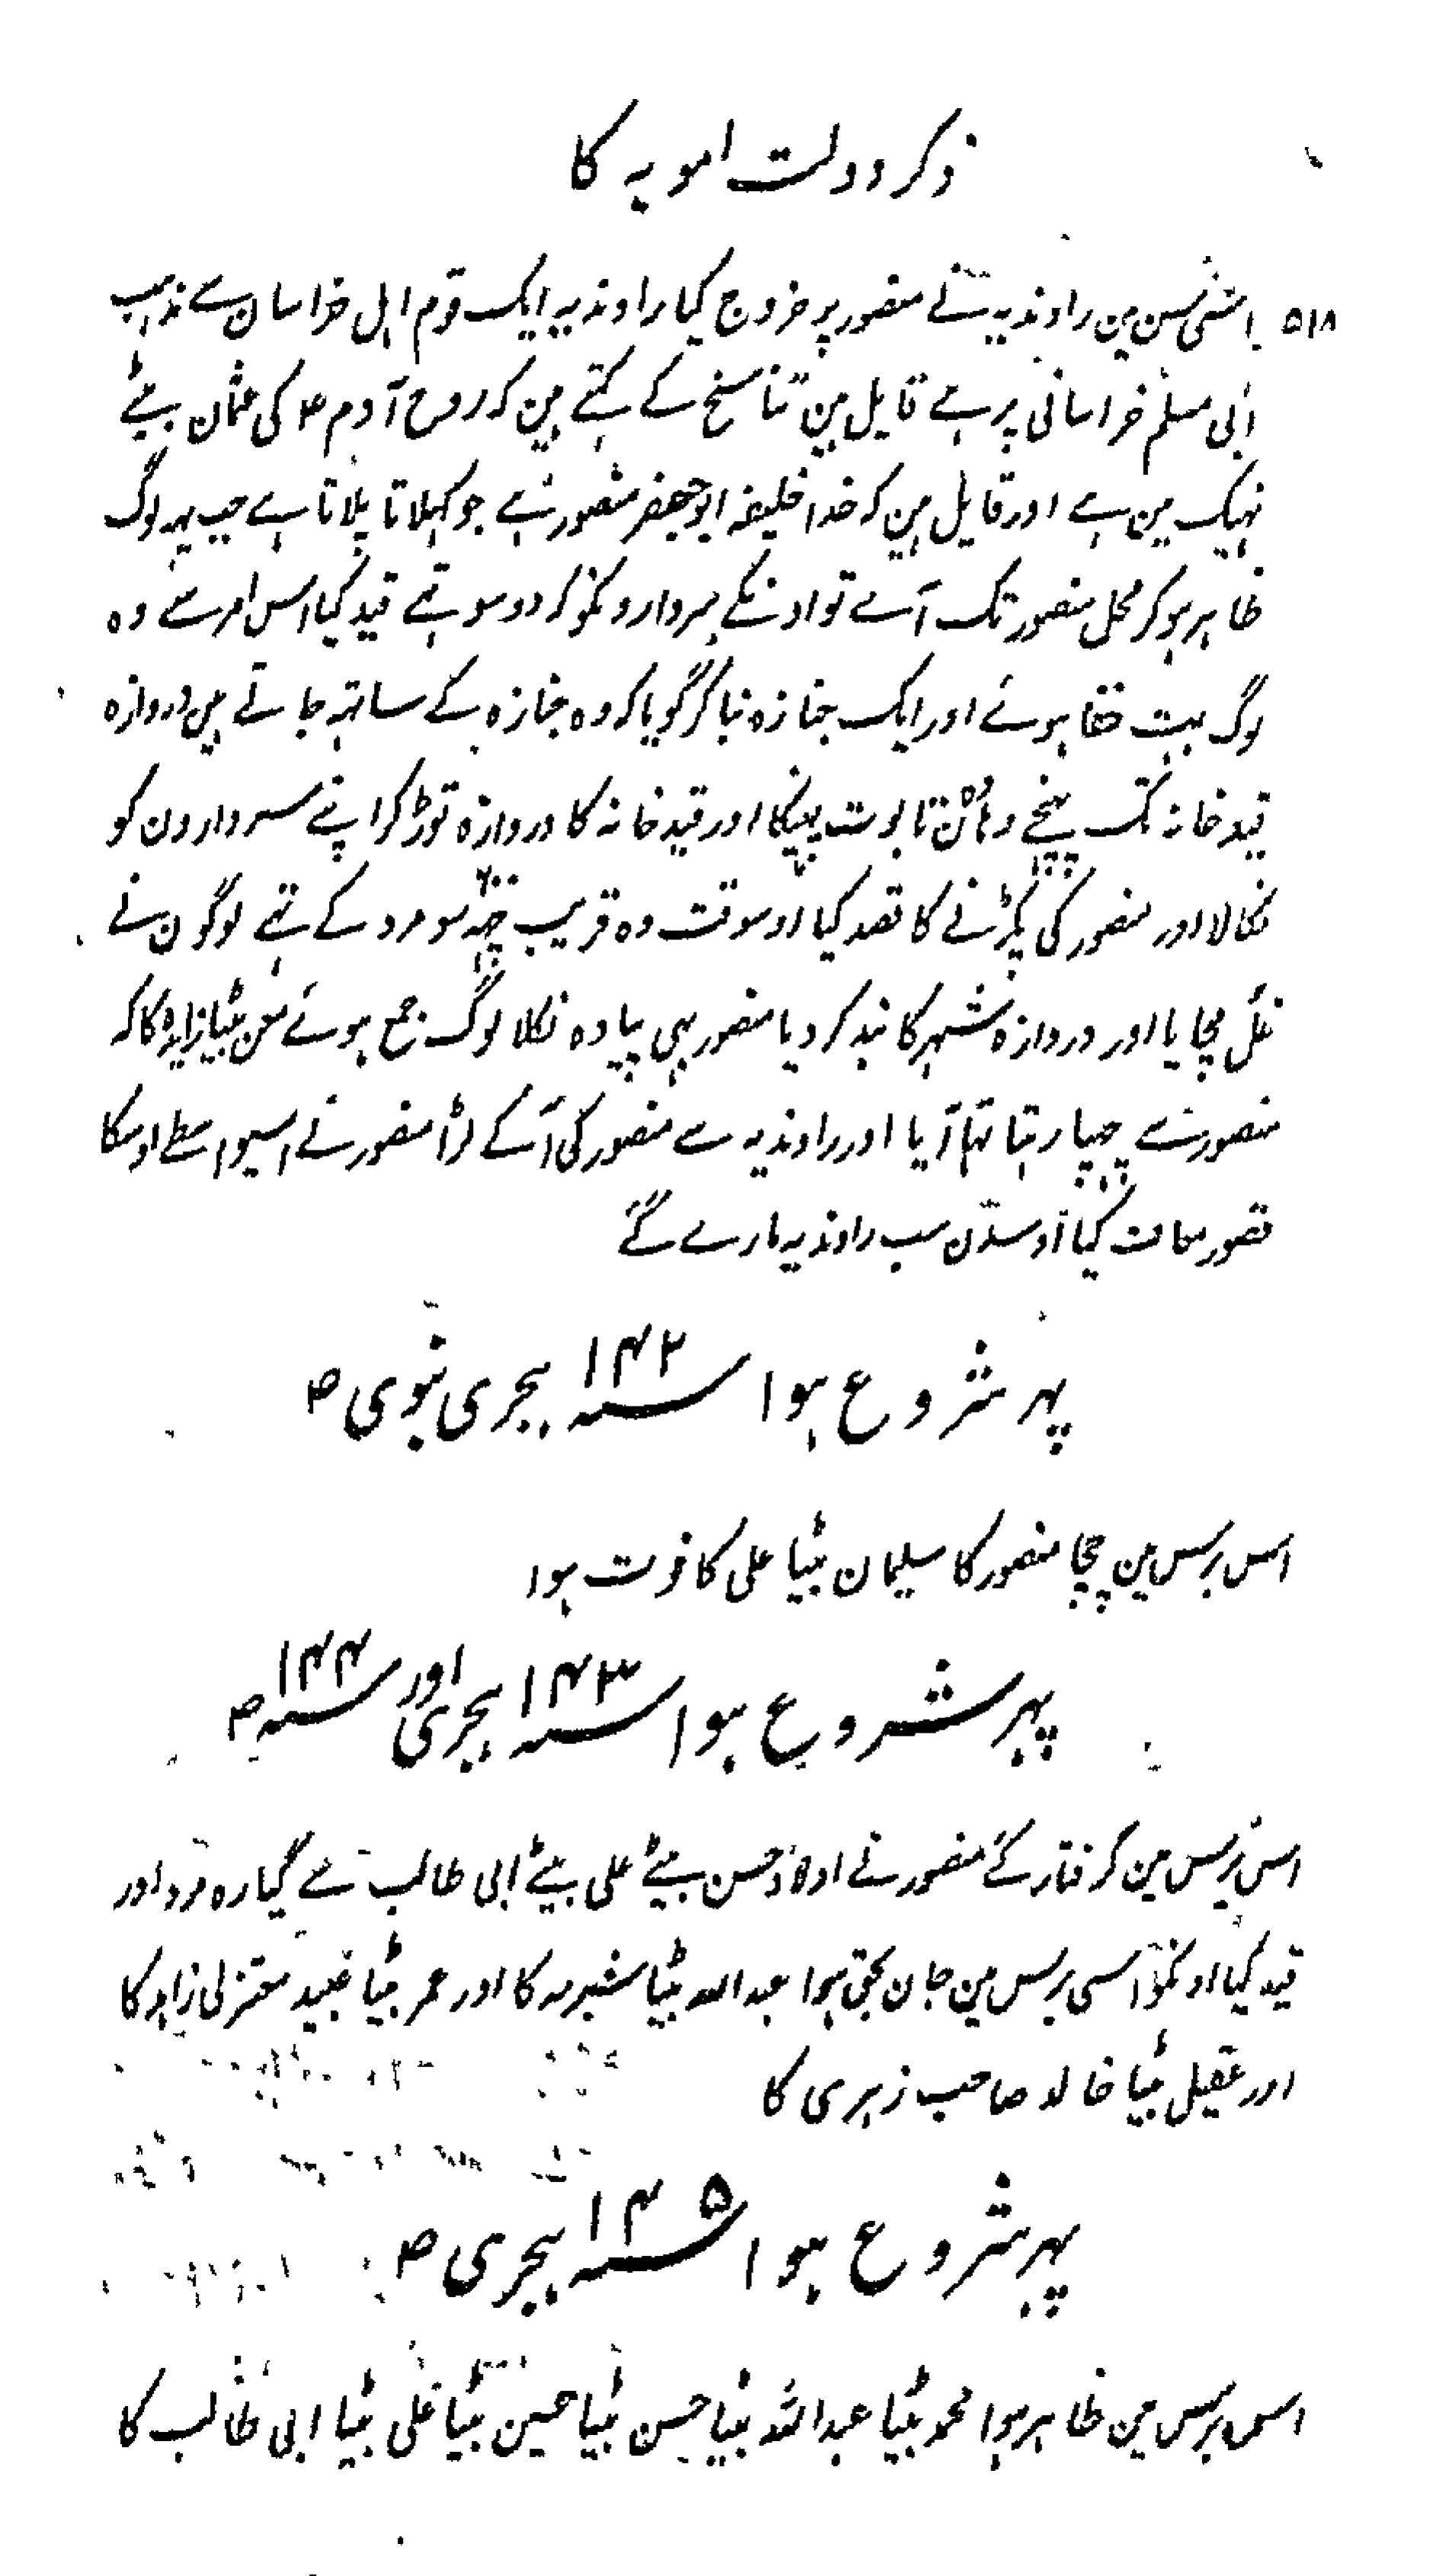 ذکر دولت امویہ کا
۵۱۸ اسی سن مین راوندیہ نے منصور پر خروج کیا راوندیہ ایک قوم اہل خراسان سے مذہب
ابی مسلم خراسانی پر ہے قایل ہین تناسخ کے کہتے ہین کہ روح آدم ۴ کی عثمان بیٹے
نہیک مین ہے اور قایل ہین کہ خدا خلیفہ ابو جعفر منصور ہے جو کہلاتا پلاتا ہے جب یہ لوگ
ظاہر ہو کر محل منصور تک آے تو اونکے سردارونکو کہ دو سو تہے قید کیا اس امر سے وہ
لوگ بہت خفا ہوئے اور ایک جنازہ بنا کر گویا کہ وہ جنازہ کے ساتہہ جاتے ہین دروازہ
قید خانہ تک پہنچے وہان تابوت پہینکا اور قید خانہ کا دروازہ توڑ کر اپنے سردارون کو
نکالا اور منصور کی پکڑنے کا قصد کیا اوسوقت وہ قریب چہہ ۶۰۰ سو مرد کے تہے لوگون نے
غل مچایا اور دروازہ شہر کا بند کر دیا منصور بہی پیادہ نکلا لوگ جمع ہوئے معن بیٹا زایدہ کا کہ
منصور سے چہپا رہتا تہا آیا اور راوندیہ سے منصور کی آگے لڑا منصور نے اسیواسطے اوسکا
قصور معاف کیا اوسدن سب راوندیہ مارے گئے
پہر شروع ہوا سنہ ۱۴۲ ہجری نبوی ص
اس برس مین چچا منصور کا سلیمان بیٹا علی کا فوت ہوا
پہر شروع ہوا سنہ ۱۴۳ ہجری اور سنہ ۱۴۴ ص
اس برس مین گرفتار کئے منصور نے اولاد حسن بیٹے علی بیٹے ابی طالب سے گیارہ مرد اور
قید کیا اونکو اسی برس مین جان بحق ہوا عبد اللہ بیٹا شبرمہ کا اور عمر بیٹا عبید معتزلی زاہد کا
اور عقیل بیٹا خالد صاحب زہری کا
پہر شروع ہوا سنہ ۱۴۵ ہجری ص
اس برس مین ظاہر ہوا محمد بیٹا عبد اللہ بیٹا حسن بیٹا حسین بیٹا علی بیٹا ابی طالب کا